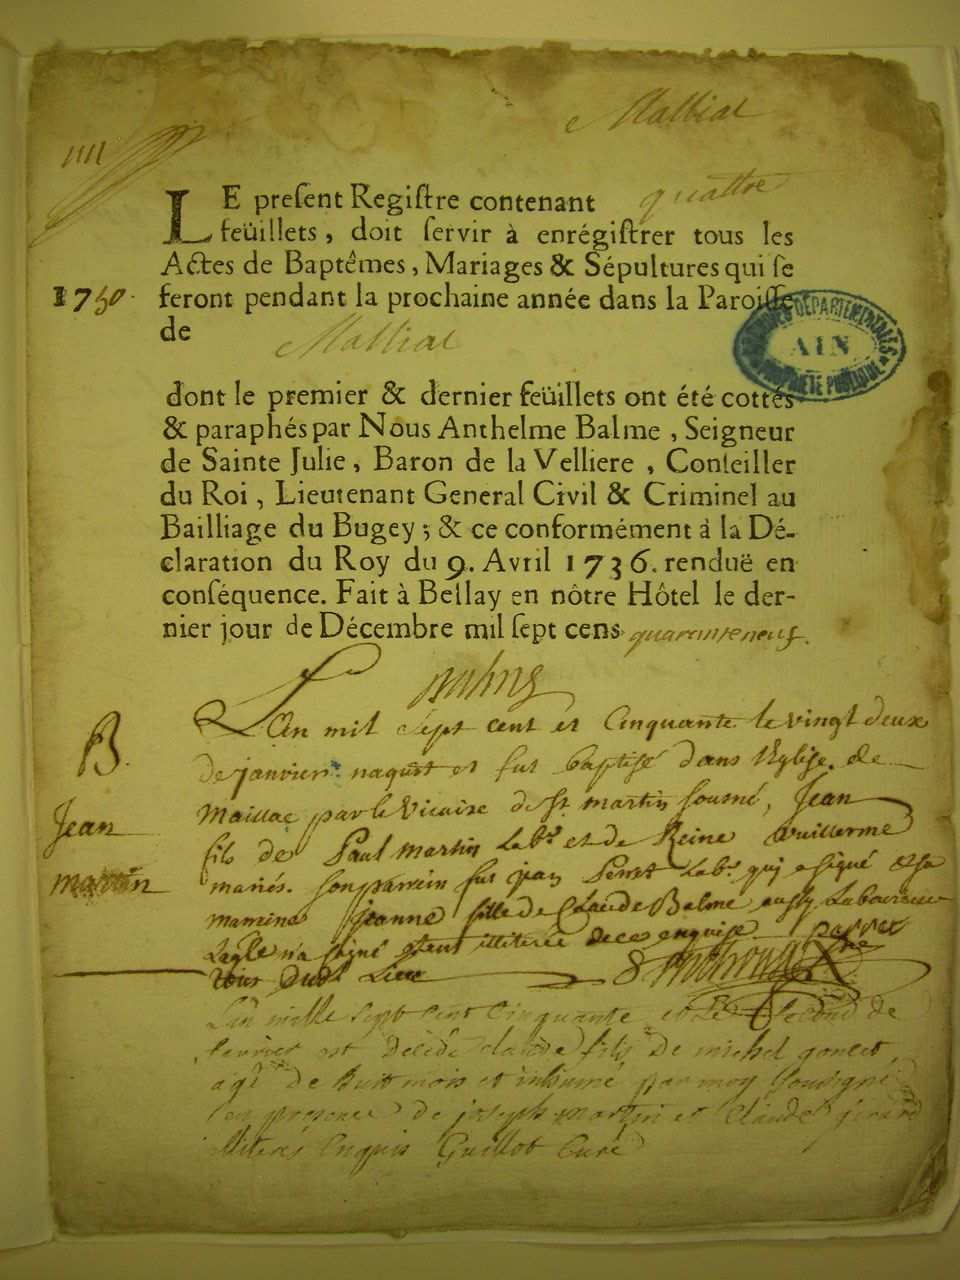 Malliat
LE preſent Regiſtre contenant quattre
feüillets, doit ſervir à enrégiſtrer tous les
Actes de Baptêmes, Mariages & Sépultures qui ſe
1750. feront pendant la prochaine année dans la Paroiſſe
de Malliat
ARCHIVES DÉPARTEMENTALES
AIN
PROPRIÉTÉ PUBLIQUE
dont le premier & dernier feüillets ont été cottés
& paraphés par Nous Anthelme Balme, Seigneur
de Sainte Julie, Baron de la Velliere, Conſeiller
du Roi, Lieutenant General Civil & Criminel au
Bailliage du Bugey; & ce conformément à la Dé-
claration du Roy du 9. Avril 1736. renduë en
conſéquence. Fait à Bellay en nôtre Hôtel le der-
nier jour de Décembre mil ſept cens quaranteneuf.
Balme
B.
Jean
martin
L'an mil sept cent et cinquante le vingt deux
de janvier naquit et fut baptisé dans l'Eglise de
Maillac par le Vicaire de St martin sousné, Jean
fils de Paul martin Labr et de Reine vuillerme
mariés. son parrein fut jean Perret Labr qui a signé et sa
marreine jeanne fille de Claude Balme aussy Laboureur
Laqle n'a signé pour être illiterée de ce enquise. perret
dud Lieu
L'an mille sept cent cinquante et le second de
fevrier est décédé claude fils de michel goulet
agé de huit mois et inhumé par moy sousigné
en presence de joseph martin et claude jerard
illiterés enquis Guillot Curé